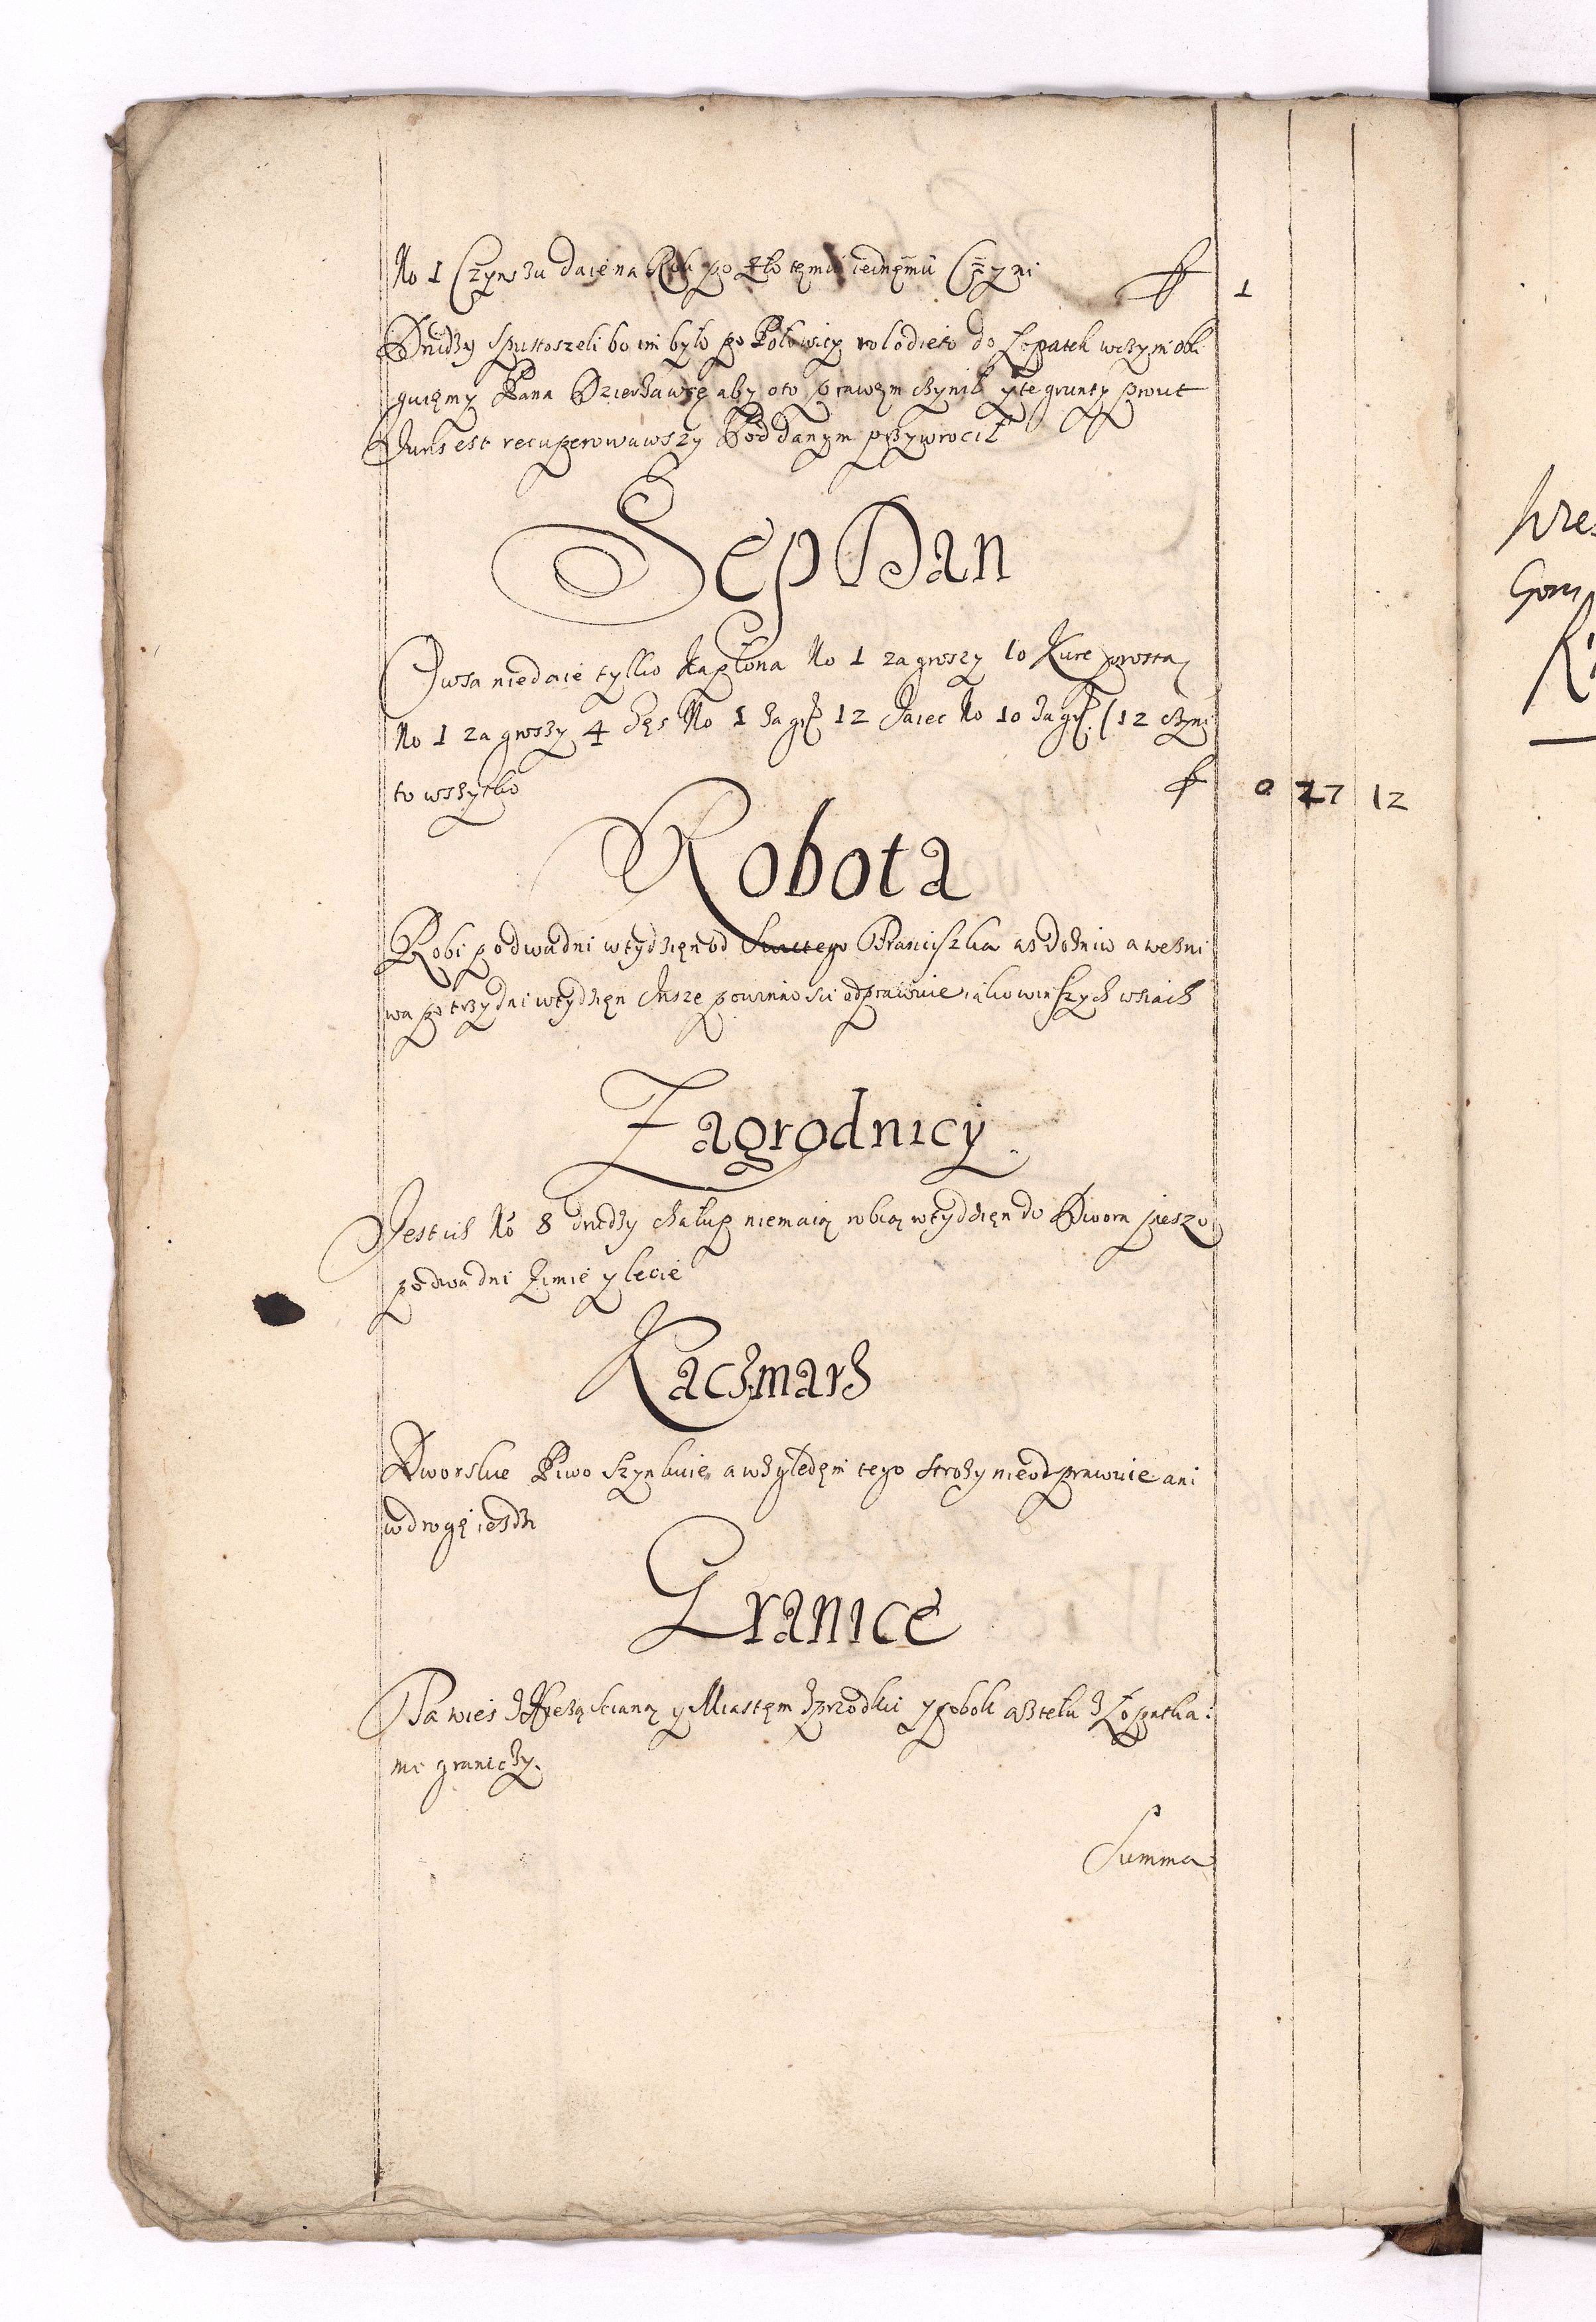 No 1 Czynszu daie na Rok po złotemu iednemu Czyni f 1
Drudzy spustoszeli bo im było po Połowicy rol odieto do Łopatek wczym obli
guięmy Pana Dzierżawcę aby oto prawem czynił y te grunty prout
Juris est recuperowawszy Poddanym przywrocił
Sep Dan
Owsa niedaie tylko Kapłona No 1 za groszy 10 Kurę prostą
No 1 za groszy 4 Gęś No 1 za gr 12 Jaiec No 10 za gr 1/12 czyni
to wszytko f 0 27 12
Robota
Robi podwadni wtydzien od Swiętego Franciszka asdożniw a weżni
wa po trzy dni wtydzięn insze powinnosci odprawuie iako winszych wsiach
Zagrodnicy
Jest ich No 8 drudzy chałup niemaią robią wtydzięn do Dwora pieszo
podwa dni Zimie y lecie
Kaczmarz
Dworskie Piwo szynkuie a względęm tego strozy nieodprawuie ani
wdrogę iezdzi
Granice
Ta wies z sciąną y Miastęm zprzodku y pobok aztelu z Łopatka:
mi graniczy.
Summa